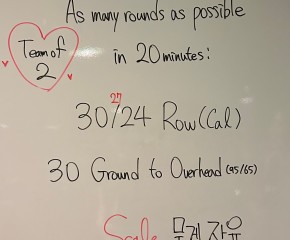 As many rounds as possible
Team of
2
in 20 minutes:
27
30/24 Row (Cal)
30 Ground to Overhead (95/65)
Scale 무게 자유